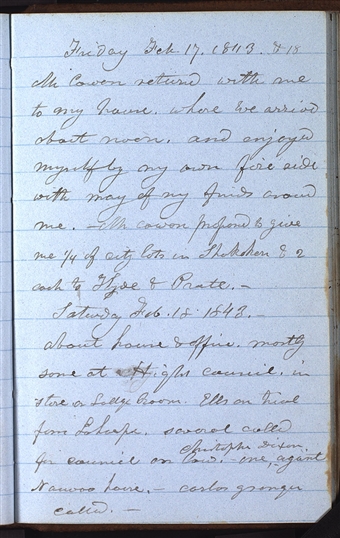 Friday Feb 17. 1843. & 18
Mr Cowen returnd with me
to my house. where we arrivd
about noon. and enjoyed
myself by my own fire side
with may of my friends around
me. - Mr cowen proposd to give
me 1/4 of city lots in Shokokon & 2
each to Hyde & Pratt. -
Saturday Feb. 18. 1843. -
about house & office. mostly
some at High council. in
store or Lodge Room. Ells on trial
from Laharpe. several called
Christopher Dixon
for council on Law. - one, against
Nauvoo house. - carlos granger
called. -